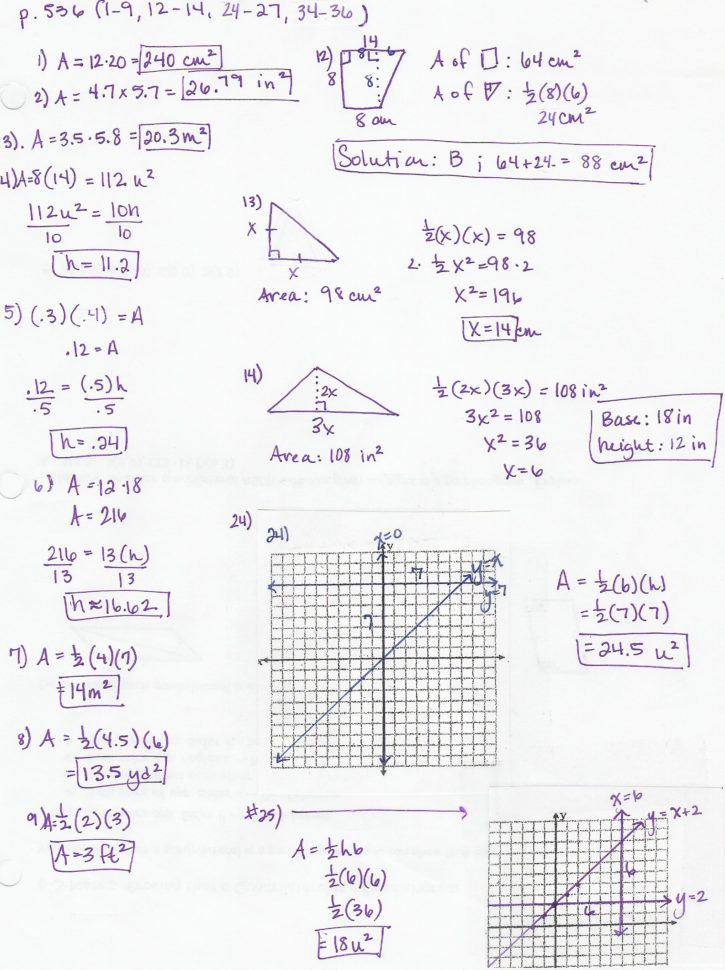 p. 536 (1-9, 12-14, 24-27, 34-36)
1) A = 12·20 = 240 cm²
2) A = 4.7 x 5.7 = 26.79 in²
3). A = 3.5·5.8 = 20.3 m²
4) A = 8(14) = 112 u²
112u² = 10h
10 10
h = 11.2
5) (.3)(.4) = A
.12 = A
.12 = (.5)h
.5 .5
h = .24
6) A = 12·18
A = 216
216 = 13(h)
13 13
h ≈ 16.62
7) A = ½(4)(7)
= 14m²
8) A = ½(4.5)(6)
= 13.5 yd²
9) A = ½(2)(3)
A = 3 ft²
12)
14
8 6
8
8
8 cm
A of □ : 64 cm²
A of ▽ : ½(8)(6)
24 cm²
Solution: B ; 64 + 24 = 88 cm²
13)
x
x
Area: 98 cm²
½(x)(x) = 98
2· ½x² = 98·2
x² = 196
x = 14 cm
14)
2x
3x
Area: 108 in²
½(2x)(3x) = 108 in²
3x² = 108
x² = 36
x = 6
Base: 18 in
height: 12 in
24)
24)
x=0
y
7
y=x
y=7
7
A = ½(b)(h)
= ½(7)(7)
= 24.5 u²
#25)
A = ½hb
½(6)(6)
½(36)
= 18u²
x=6
y
y = x+2
6
6
y=2